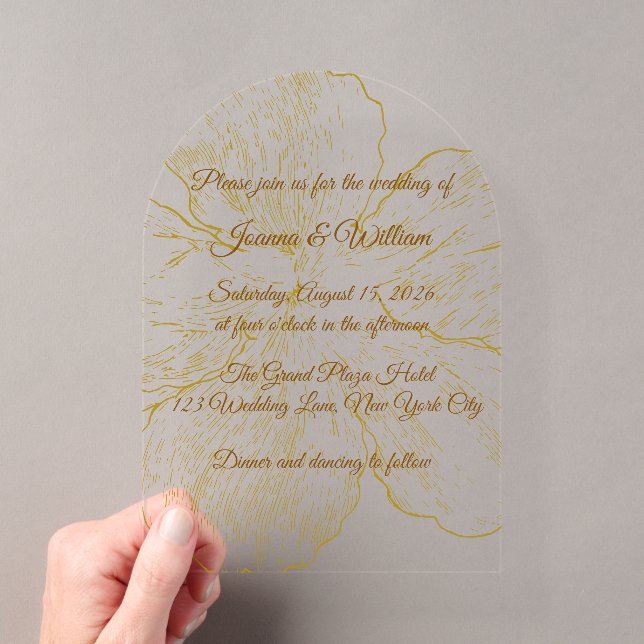 Please join us for the wedding of
Joanna & William
Saturday, August 15, 2026
at four o'clock in the afternoon
The Grand Plaza Hotel
123 Wedding Lane, New York City
Dinner and dancing to follow